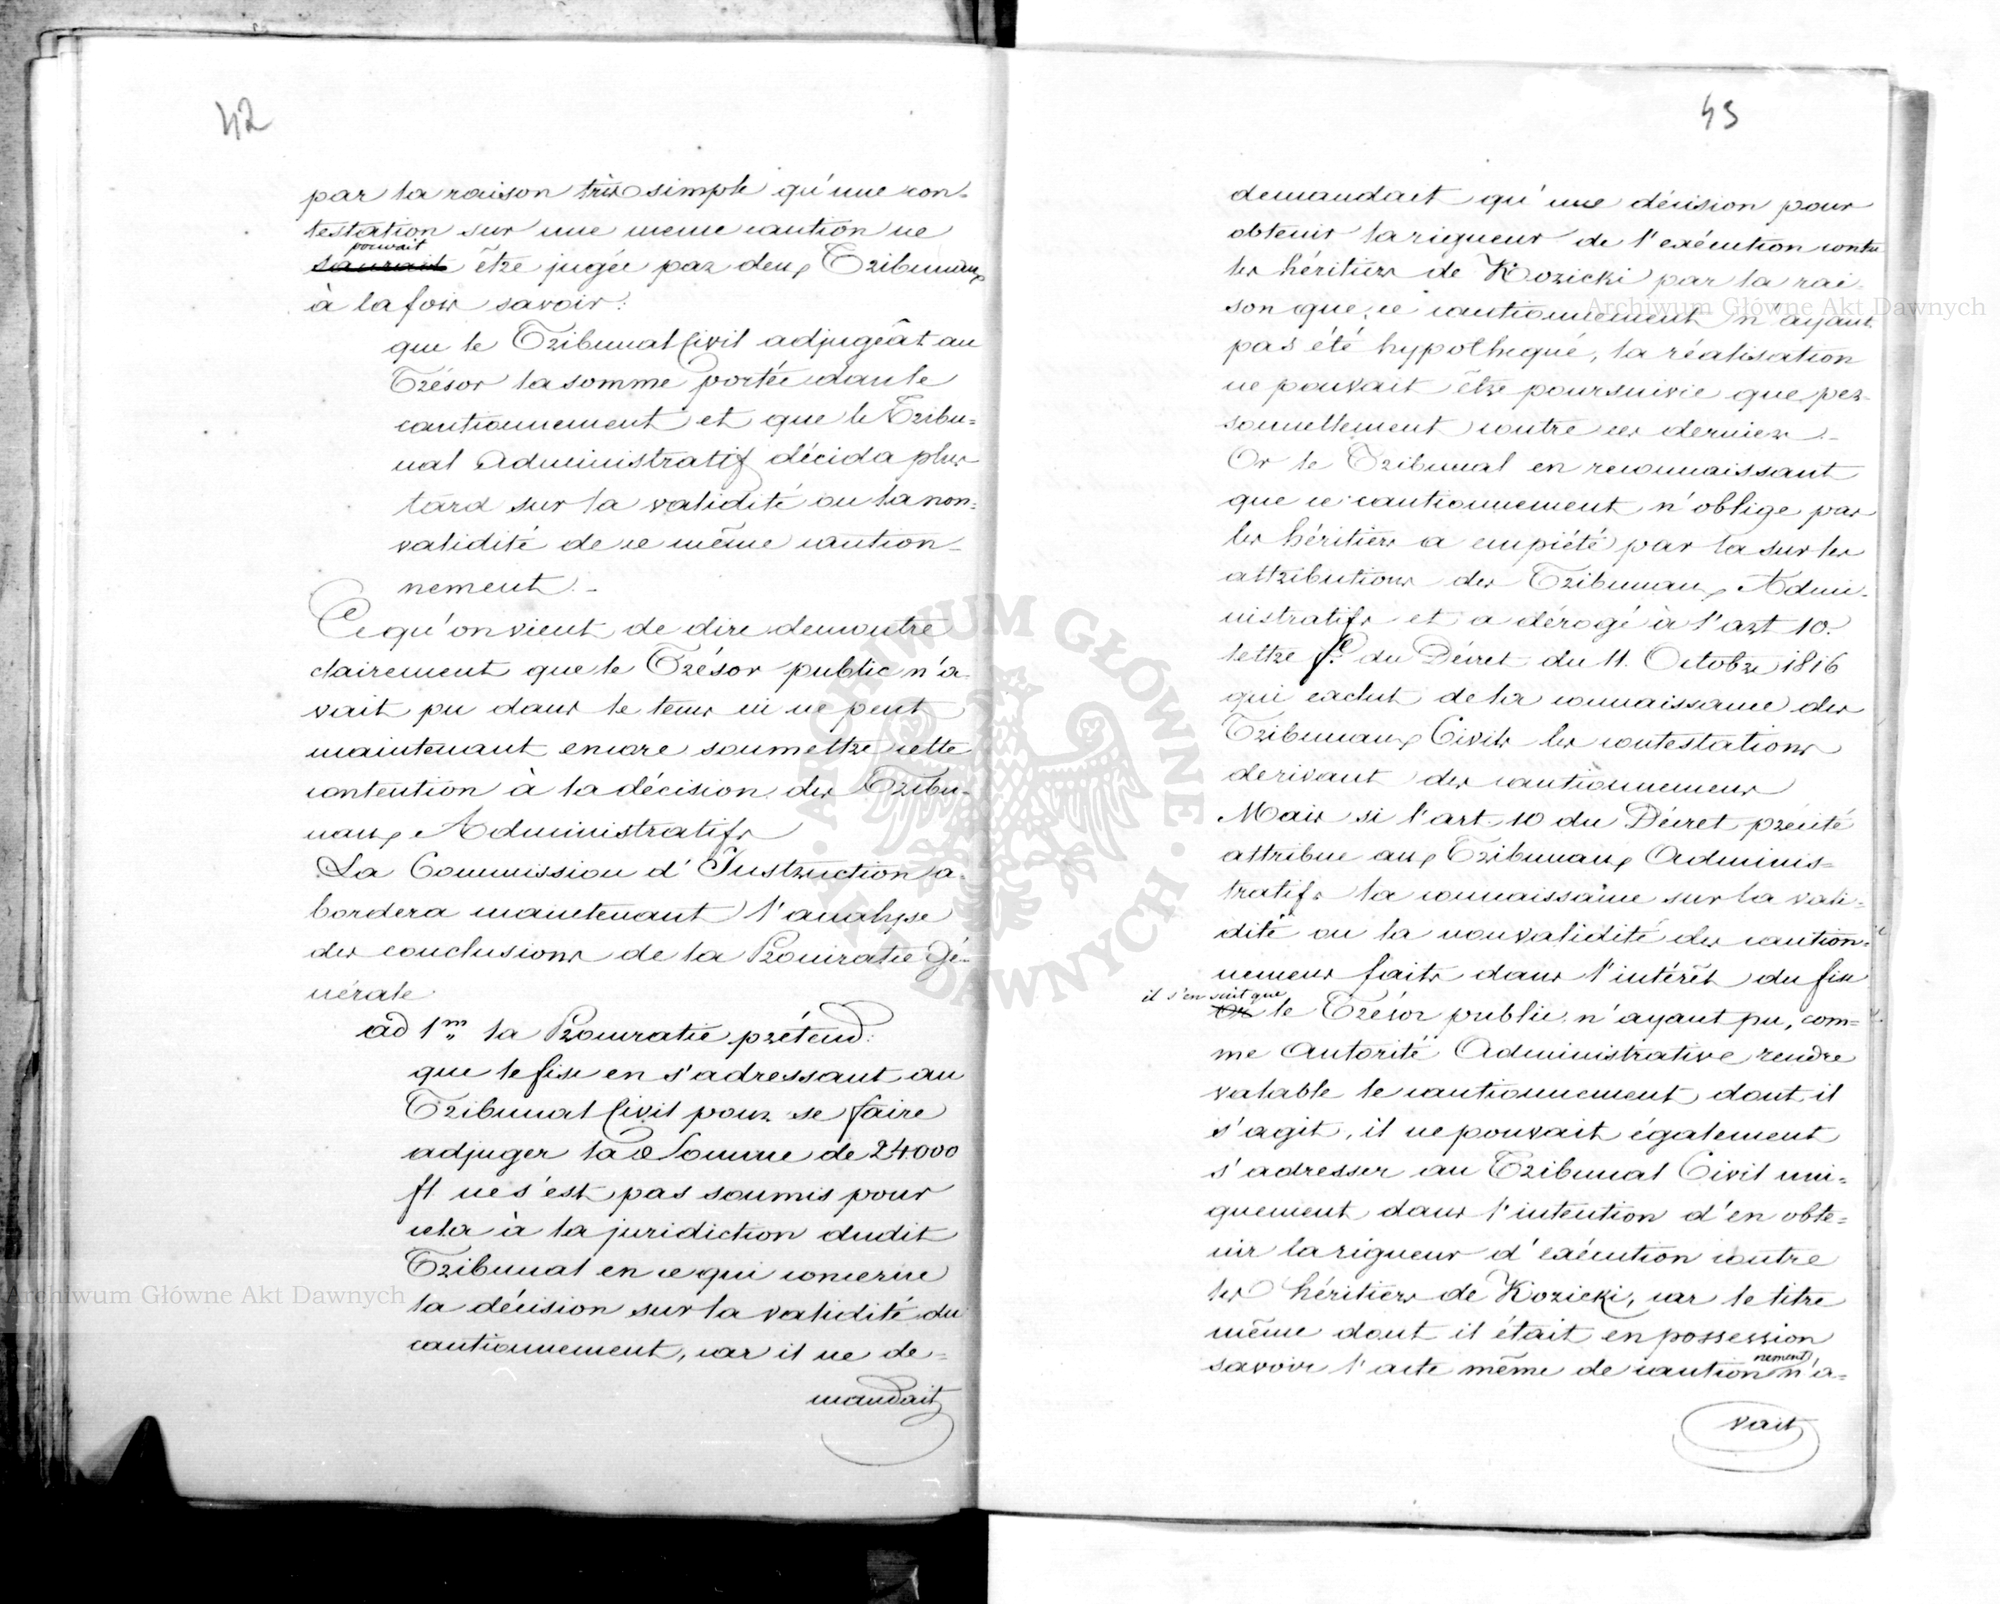 42
par la raison très simple qu'une con-
testation sur une meme caution ne
pouvait
saurait être jugée par deux Tribunaux
à la fois savoir:
que le Tribunal Civil adjugeât au
Trésor la somme portée dans le
cautionnement et que le Tribu-
nal Administratif décida plus
tard sur la validité ou la non-
validité de ce même caution-
nement. -
Ce qu'on vient de dire demontre
clairement que le Trésor public n'a-
vait pu dans le tems ni ne peut
maintenant encore soumettre cette
contention à la décision des Tribu-
naux Administratifs
La Commission d'Instruction a-
bordera maintenant l'analyse
des conclusions de la Procuratie Gé-
nérale
ad 1m la Procuratie prétend:
que le fisc en s'adressant au
Tribunal Civil pour se faire
adjuger la Somme de 24.000
fl. ne s'est pas soumis pour
cela à la juridiction dudit
Tribunal en ce qui concerne
la décision sur la validité du
cautionnement, car il ne de-
mandait
43
demandait qu'une décision pour
obtenir la rigueur de l'exécution contre
les héritiers de Kozicki par la rai-
son que, ce cautionnement n'ayant
pas été hypothequé, la réalisation
ne pouvait être poursuivie que per-
sonnellement contre ces derniers. -
Or le Tribunal en reconnaissant
que ce cautionnement n'oblige pas
les héritiers a empiété par la sur les
attributions des Tribunaux Admi-
nistratifs et a dérogé à l'art 10.
lettre f. du Décret du 11. Octobre 1816
qui exclut de la connaissance des
Tribunaux Civils les contestations
derivant des cautionnemens
Mais si l'art. 10 du Décret précité
attribue aux Tribunaux Adminis-
tratifs la connaissance sur la vali-
dité ou la nonvalidité des caution-
nemens faits dans l'intérêt du fisc
il s'en suit que
Or le Trésor public n'ayant pu, com-
me Autorité Administrative rendre
valable le cautionnement dont il
s'agit, il ne pouvait également
s'adresser au Tribunal Civil uni-
quement dans l'intention d'en obte-
nir la rigueur d'exécution contre
les héritiers de Kozicki, car le titre
même dont il était en possession
nement
savoir l'acte même de caution n'a-
vait
Archiwum Główne Akt Dawnych
Archiwum Główne Akt Dawnych
ARCHIWUM GŁÓWNE AKT DAWNYCH